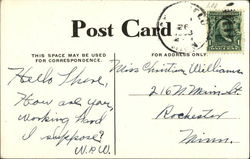 Post Card
THIS SPACE MAY BE USED
FOR CORRESPONDENCE.
FOR ADDRESS ONLY.
Hello There,
How are you,
working hard
I suppose?
W.P.W.
Miss Christina Williams
216 N Main St
Rochester
Minn.